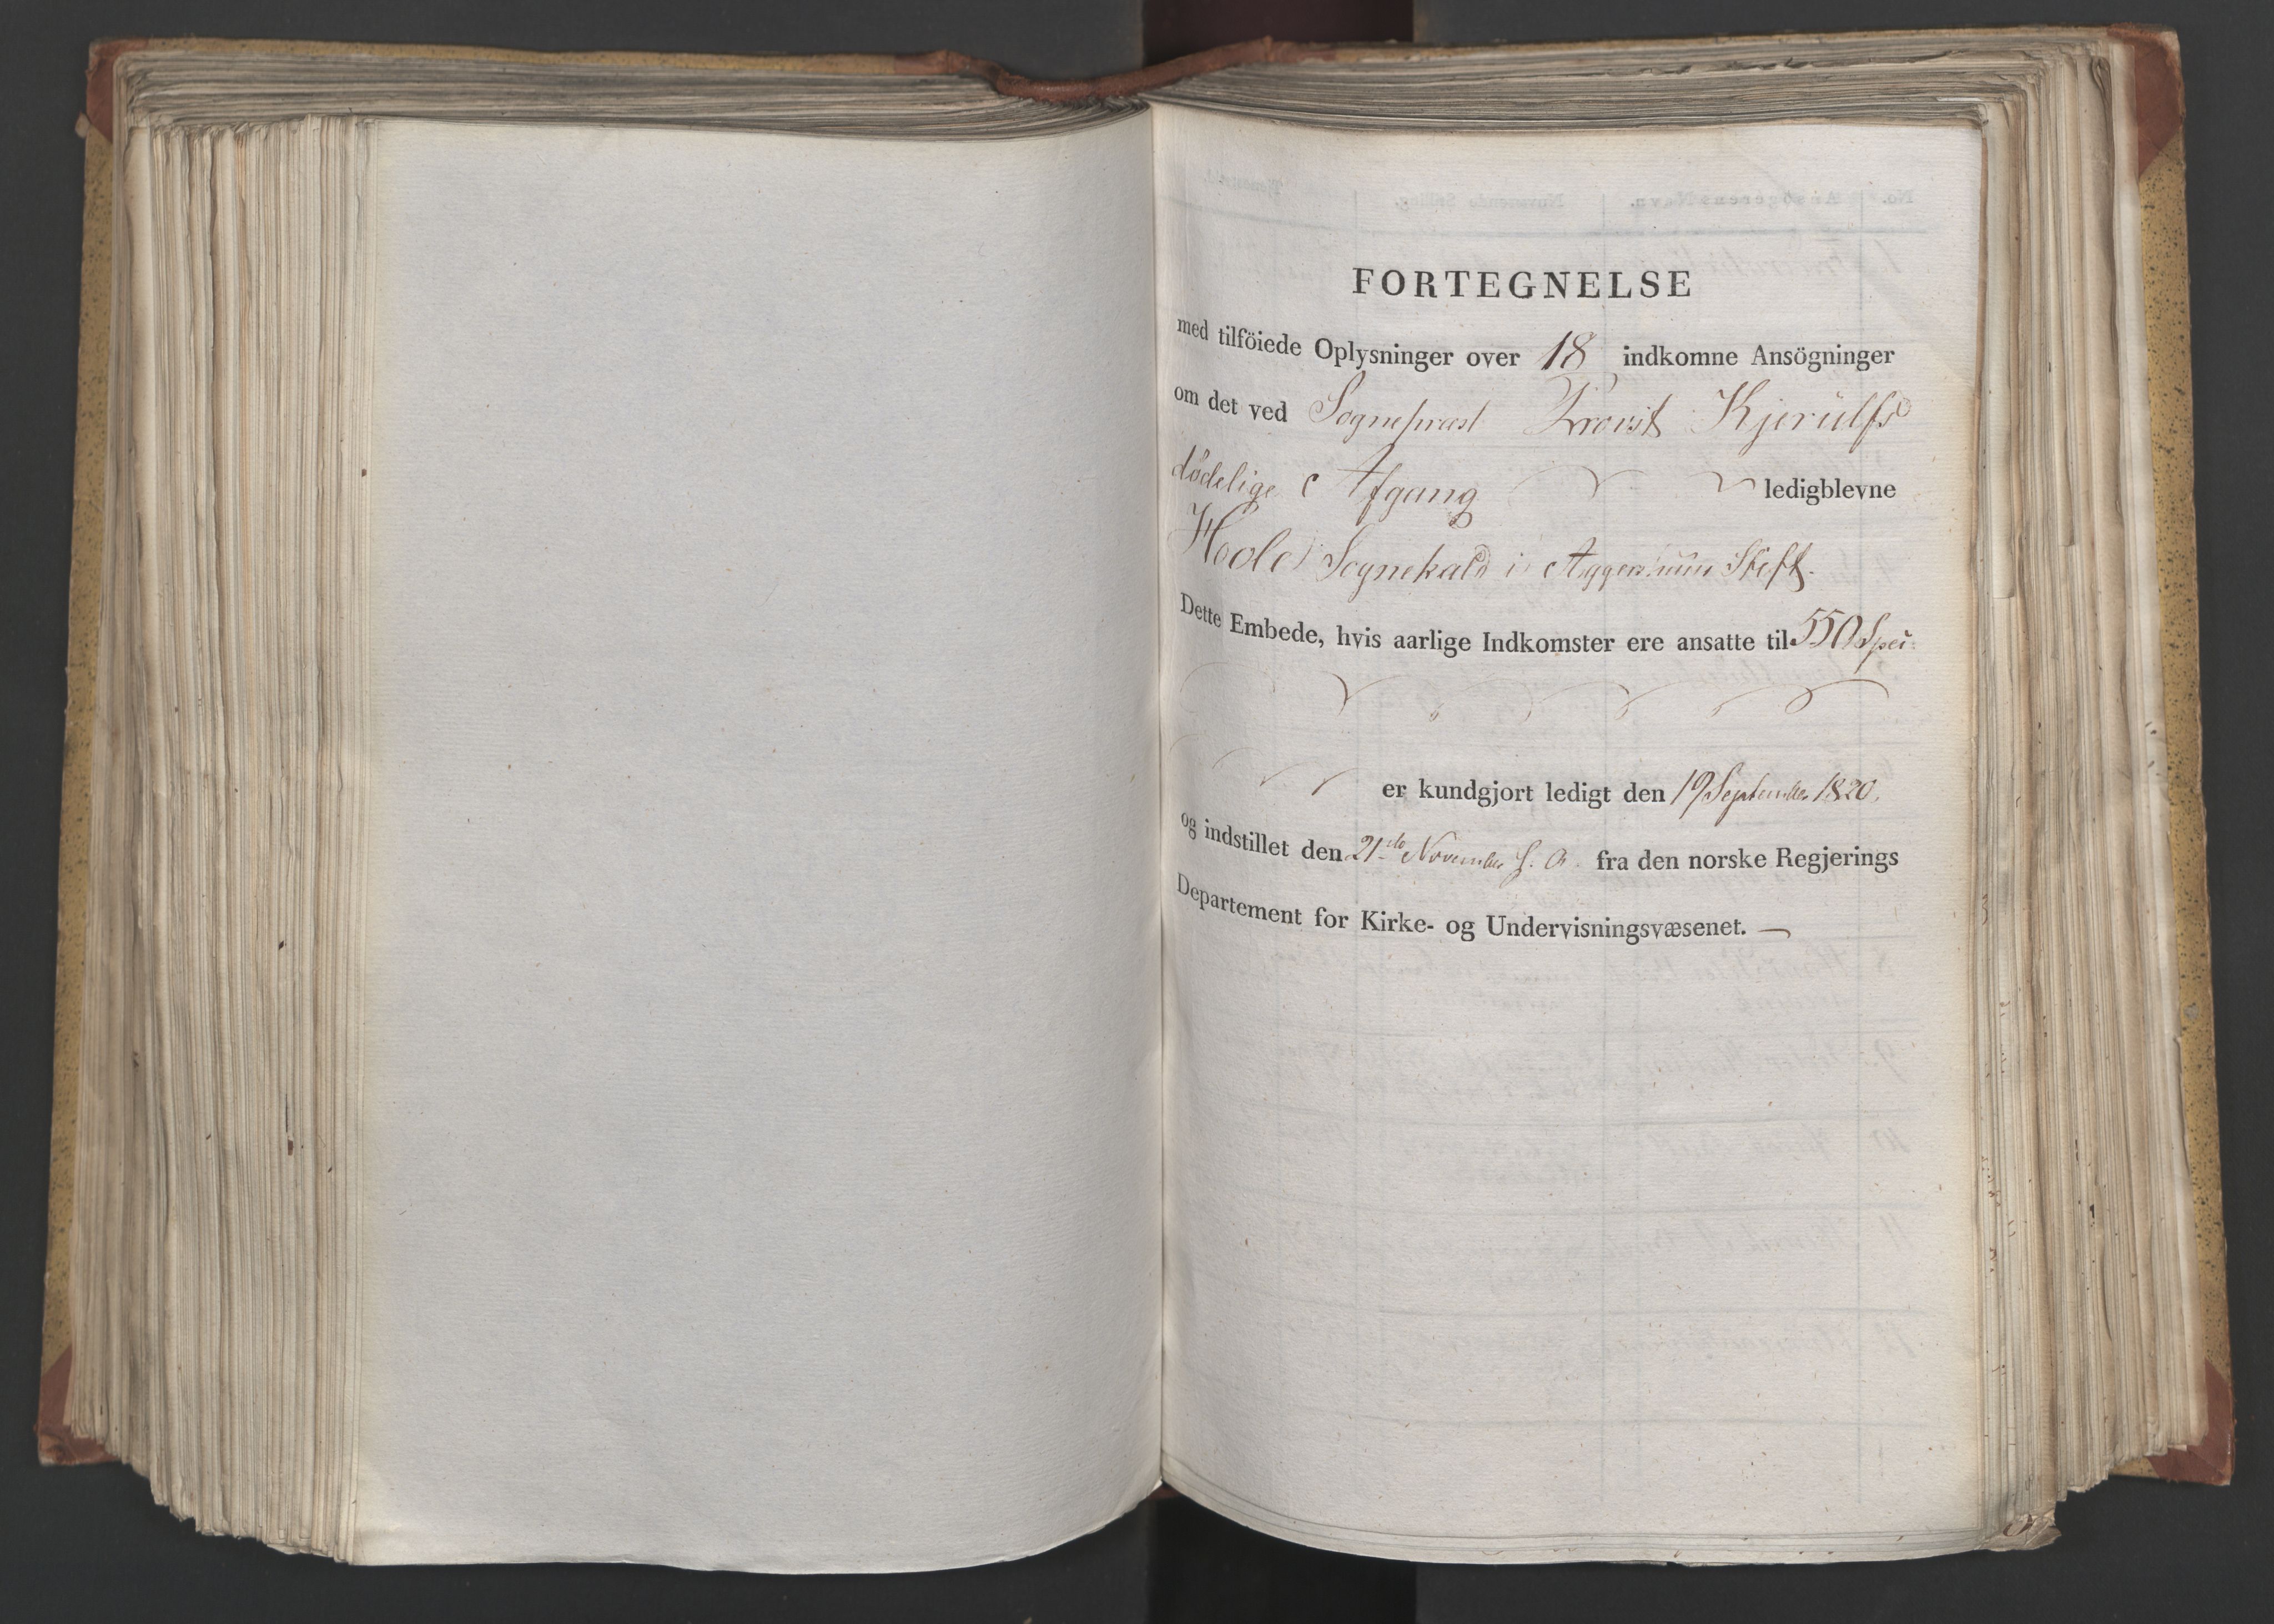 FORTEGNELSE
med tilföiede Oplysninger over 18 indkomne Ansögninger
om det ved Sognepræst Provst Kjerulfs
dødelige Afgang ledigblevne
Hole Sognekald i Aggershuus Stift.
Dette Embede, hvis aarlige Indkomster ere ansatte til 550 Spec:
er kundgjort ledigt den 19 September 1820.
og indstillet den 21de November s. A. fra den norske Regjerings
Departement for Kirke- og Undervisningsvæsenet. —